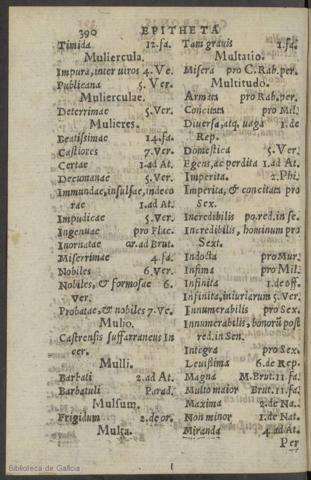 390 EPITHETA
Timida 12.fa.
Muliercula.
Impura, inter uiros 4. Ve.
Publicana 5. Ver.
Mulierculae.
Deterrimae 5. Ver.
Mulieres.
Beatissimae 14. fa.
Castiores 7. Ver.
Certae 1. ad At.
Decumanae 5. Ver.
Immundae, insulsae, indeco
rae 1. ad At.
Impudicae 5. Ver.
Ingenuae pro Flac.
Inornatae or. ad Brut.
Miserrimae 4. fa.
Nobiles 6. Ver.
Nobiles, & formosae 6.
Ver.
Probatae, & nobiles 7. Ve.
Mulio.
Castrensis suffarraneus In
cer.
Mulli.
Barbati 2. ad At.
Barbatuli Parad.
Mulsum.
Frigidum 2. de or.
Multa.
Tam grauis 1. fa.
Multatio.
Misera pro C. Rab. per.
Multitudo.
Armata pro Rab. per.
Concitata pro Mil.
Diuersa, atq; uaga 1. de
Rep.
Domestica 5. Ver.
Egens, ac perdita 1. ad At.
Imperita. 2. Phi.
Imperita, & concitata pro
Sex.
Incredibilis po. red. in se.
Incredibilis, hominum pro
Sext.
Indocta pro Mur.
Infima pro Mil.
Infinita 1. de off.
Infinita, iniuriarum 5. Ver.
Innumerabilis pro Sex.
Innumerabilis, bonorũ post
red. in Sen.
Integra pro Sex.
Leuissima 6. de Rep.
Magna M. Brut. 11. fa.
Multo maior Brut. 11. fa.
Maxima 2. de Na.
Non minor 1. de Nat.
Miranda 4. ad At.
Per
Biblioteca de Galicia